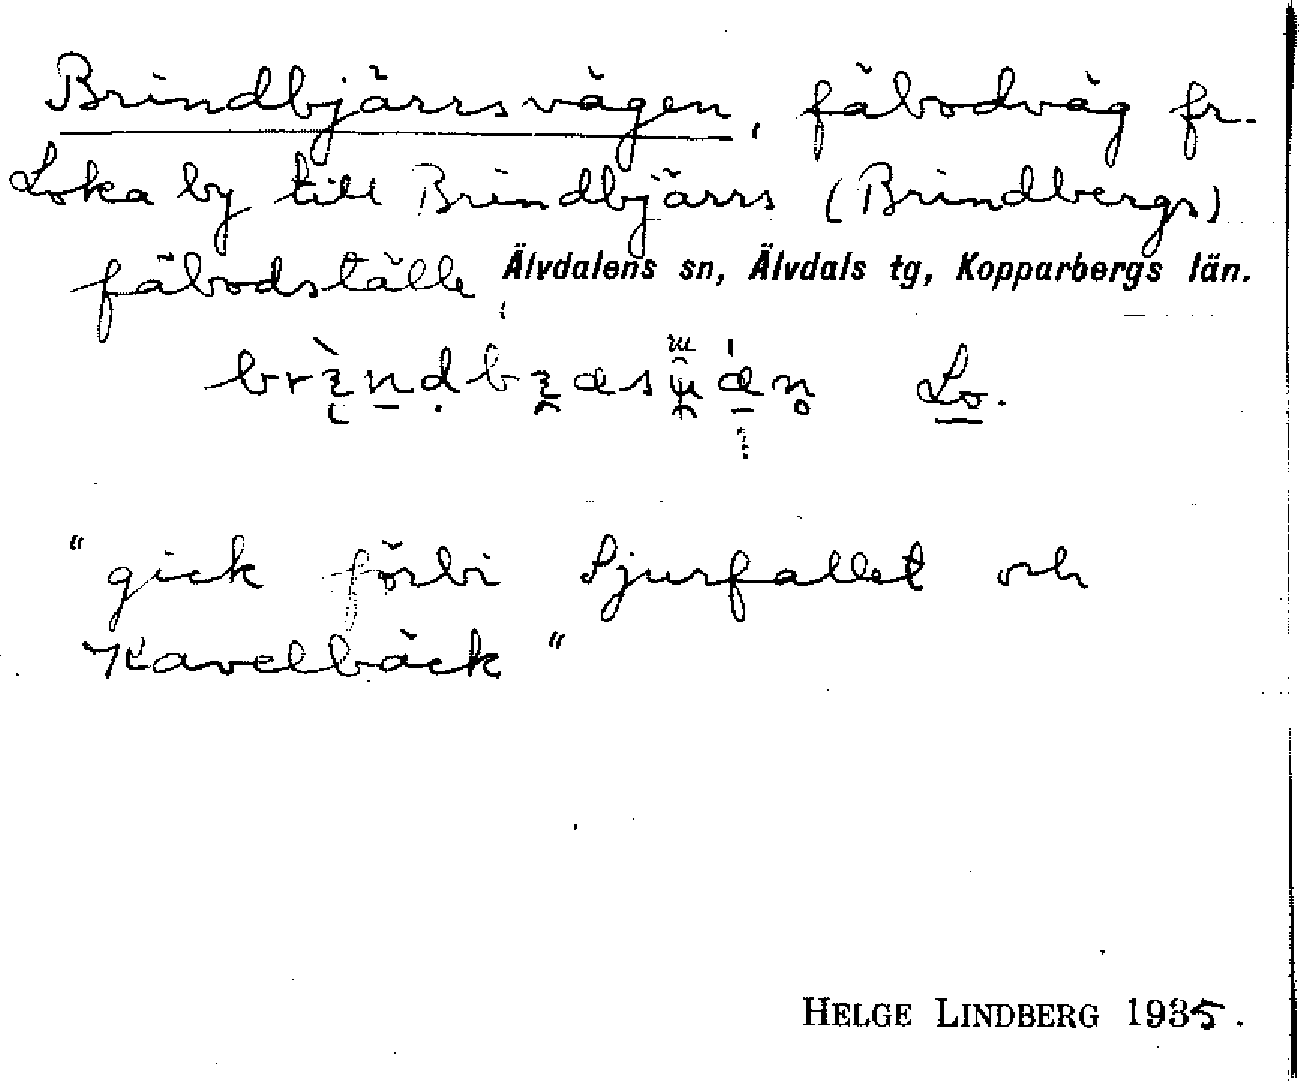 Brindbjärrsvägen, fäbodväg fr.
Loka by till Brindbjärrs (Brindbergs)
fäbodställe, Älvdalens sn, Älvdals tg, Kopparbergs län.
Lo.
"gick förbi Ljurfallet och
Kavelbäck"
HELGE LINDBERG 1935.